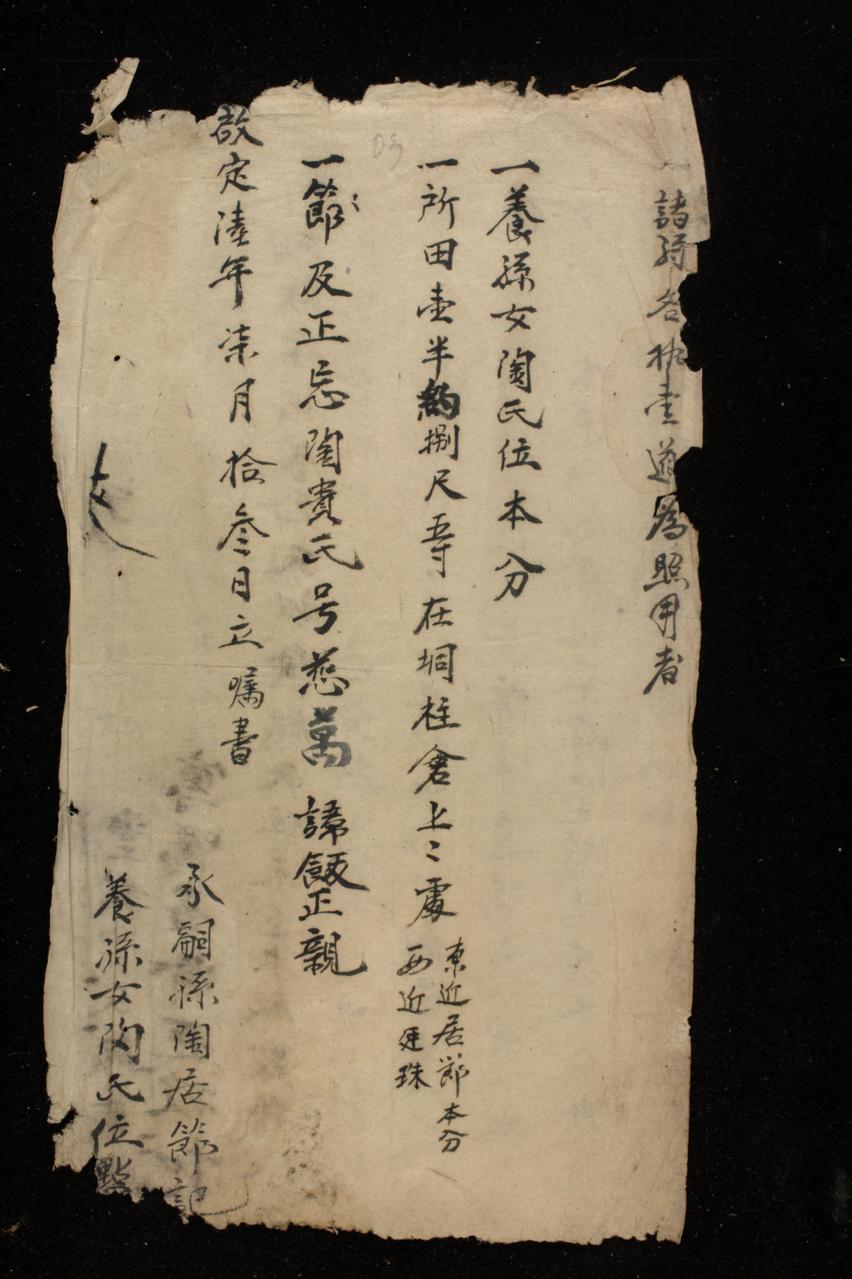 諸孫各执壹道為照用者
一養孫女陶氏位本分
一所田壹半約捌尺五寸在垌柱倉上〻處 東近居節本分 西近廷珠
一節〻及正忌陶貴氏号慈萬 諦飯正親
啟定陸年柒月拾叁日立嘱書
承嗣孫陶居節記
養孫女陶氏位點